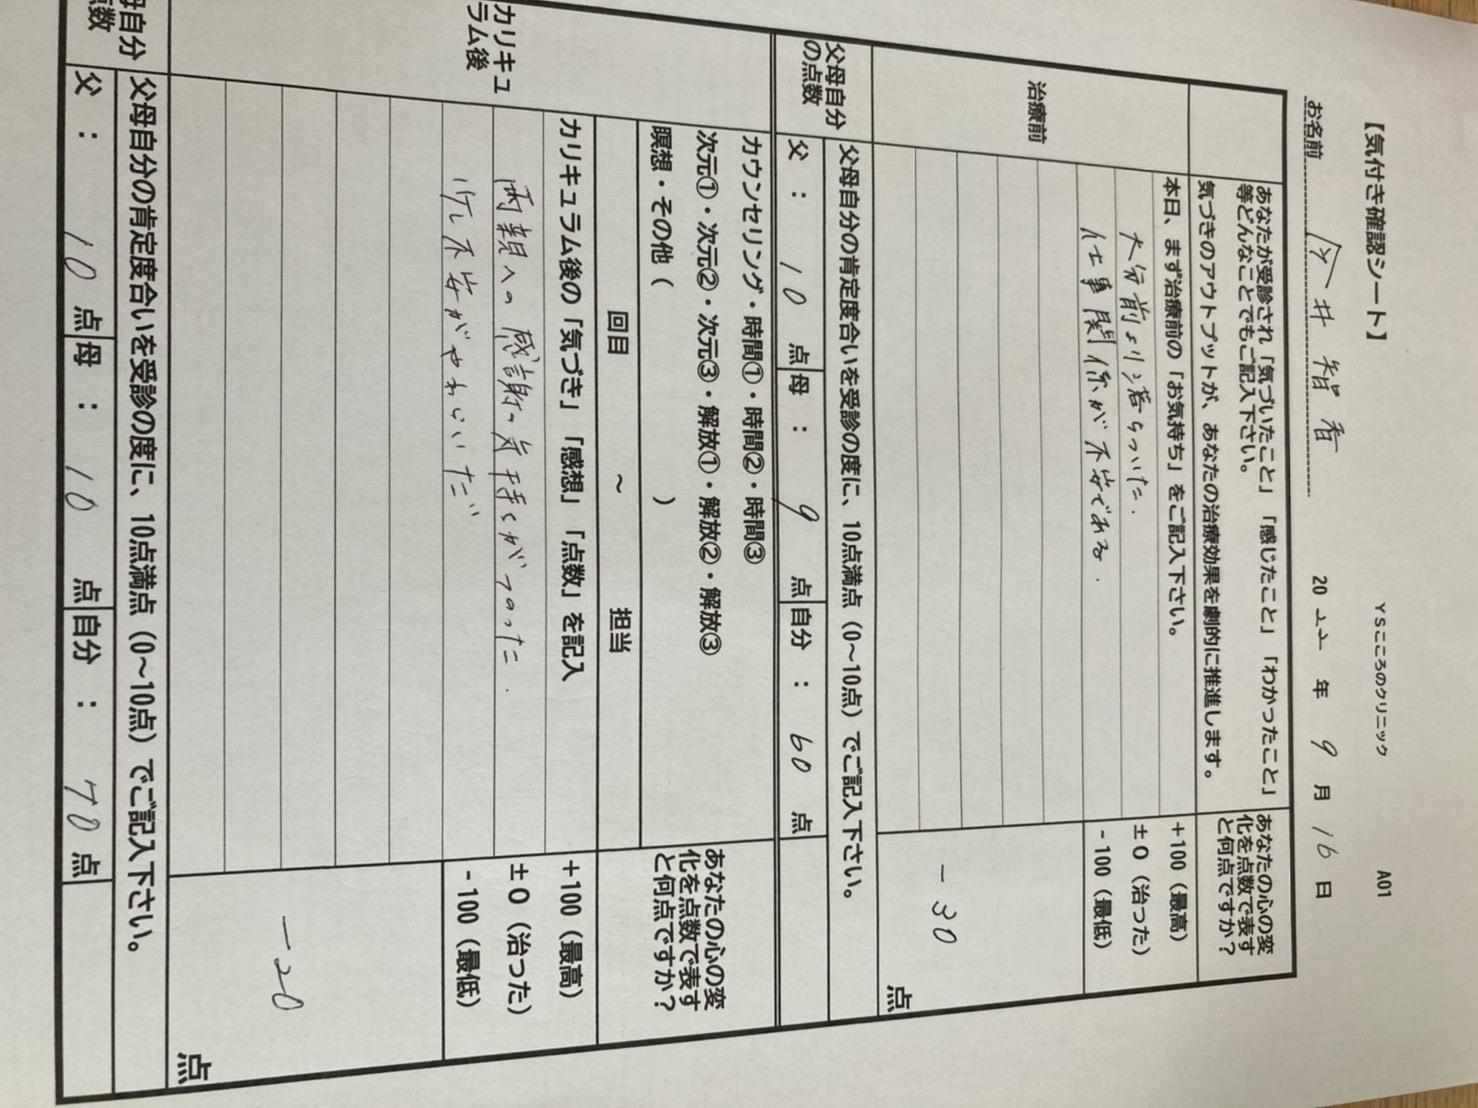 【気付き確認シート】
YSこころのクリニック A01
お名前 今井智香 2022年9月16日
あなたが受診され「気づいたこと」「感じたこと」「わかったこと」
等どんなことでもご記入下さい。
気づきのアウトプットが、あなたの治療効果を劇的に推進します。
あなたの心の変
化を点数で表す
と何点ですか?
治療前
本日、まず治療前の「お気持ち」をご記入下さい。
大分前より落ちついた.
仕事関係が不安である.
+100(最高)
±0(治った)
-100(最低)
-30
点
父母自分
の点数
父母自分の肯定度合いを受診の度に、10点満点(0〜10点)でご記入下さい。
父: 10 点 母: 9 点 自分: 60 点
カリキュ
ラム後
カウンセリング・時間①・時間②・時間③
次元①・次元②・次元③・解放①・解放②・解放③
瞑想・その他( )
回目 〜 担当
あなたの心の変
化を点数で表す
と何点ですか?
カリキュラム後の「気づき」「感想」「点数」を記入
両親への感謝の気持ちがつのった.
少し不安がやわらいだ
+100(最高)
±0(治った)
-100(最低)
-20
点
母自分
点数
父母自分の肯定度合いを受診の度に、10点満点(0〜10点)でご記入下さい。
父: 10 点 母: 10 点 自分: 70 点